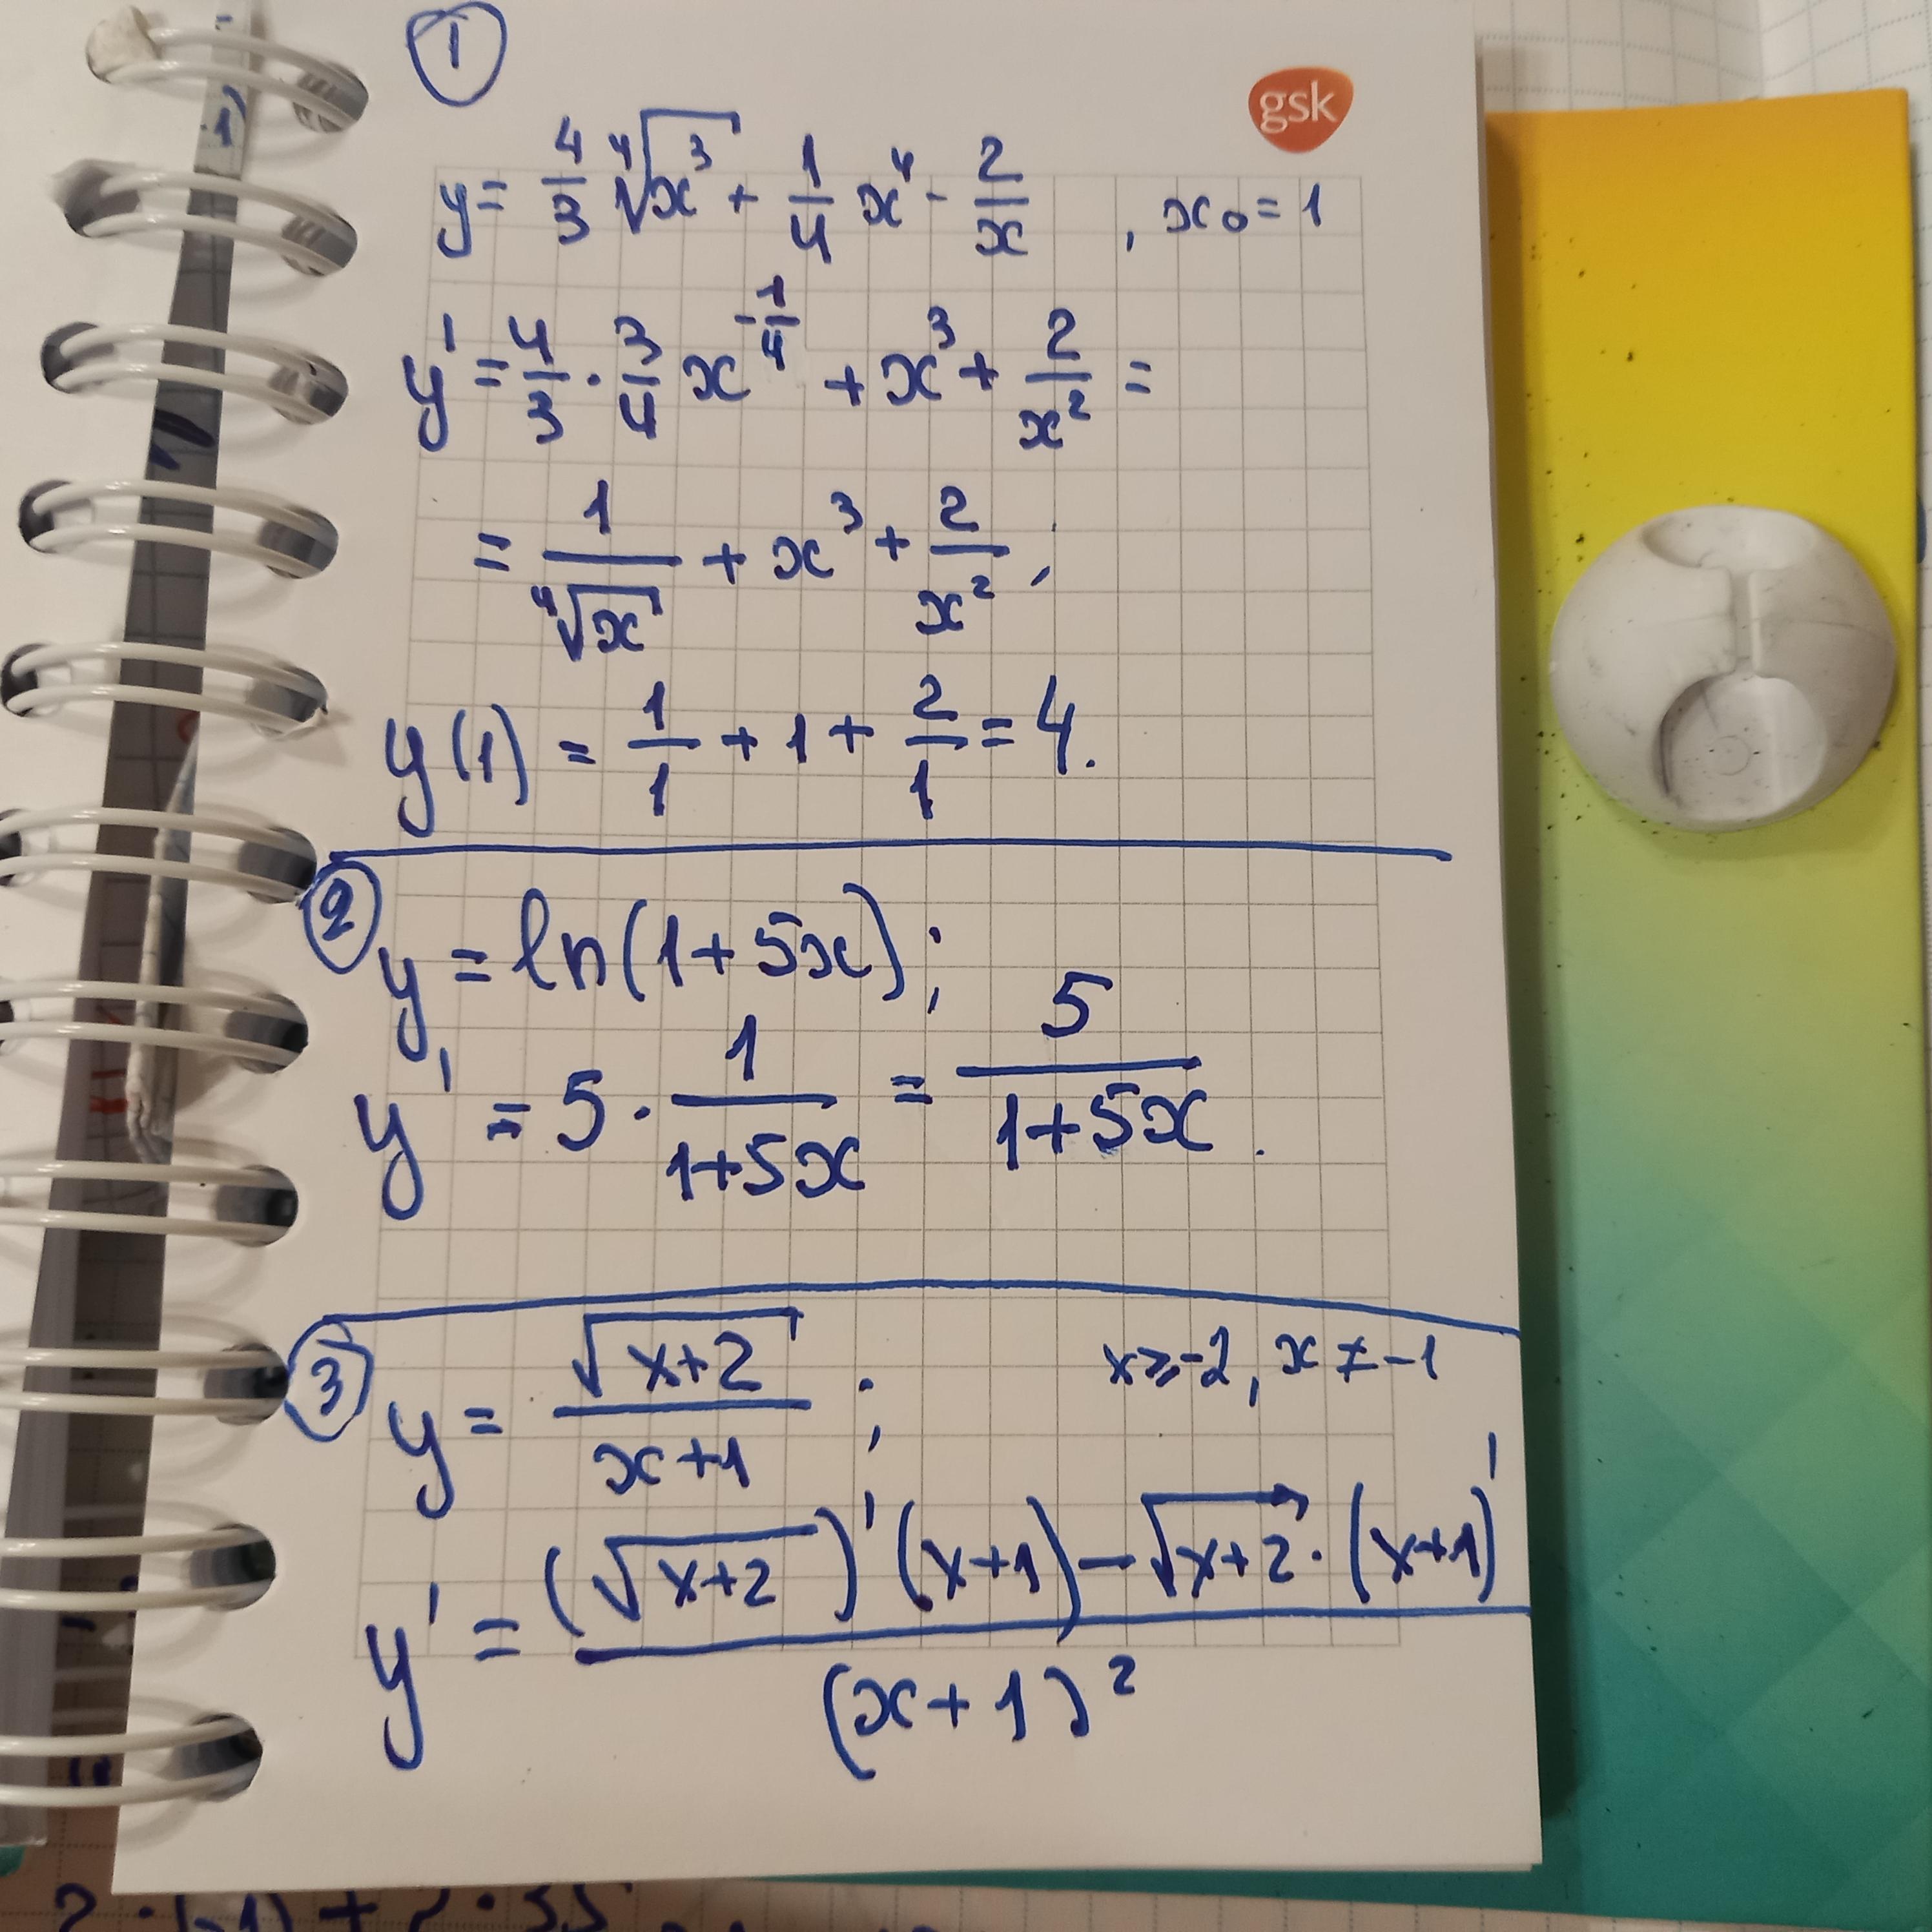 ①
gsk
y = 4/3 ∜x³ + 1/4 x⁴ - 2/x , x₀ = 1
y' = 4/3 · 3/4 x^(-1/4) + x³ + 2/x² =
= 1/∜x + x³ + 2/x² ;
y(1) = 1/1 + 1 + 2/1 = 4.
② y = ln(1+5x) ;
y' = 5 · 1/(1+5x) = 5/(1+5x) .
③ y = √(x+2)/(x+1) ; x ⩾ -2, x ≠ -1
y' = ((√(x+2))' (x+1) - √(x+2) · (x+1)')/(x+1)²